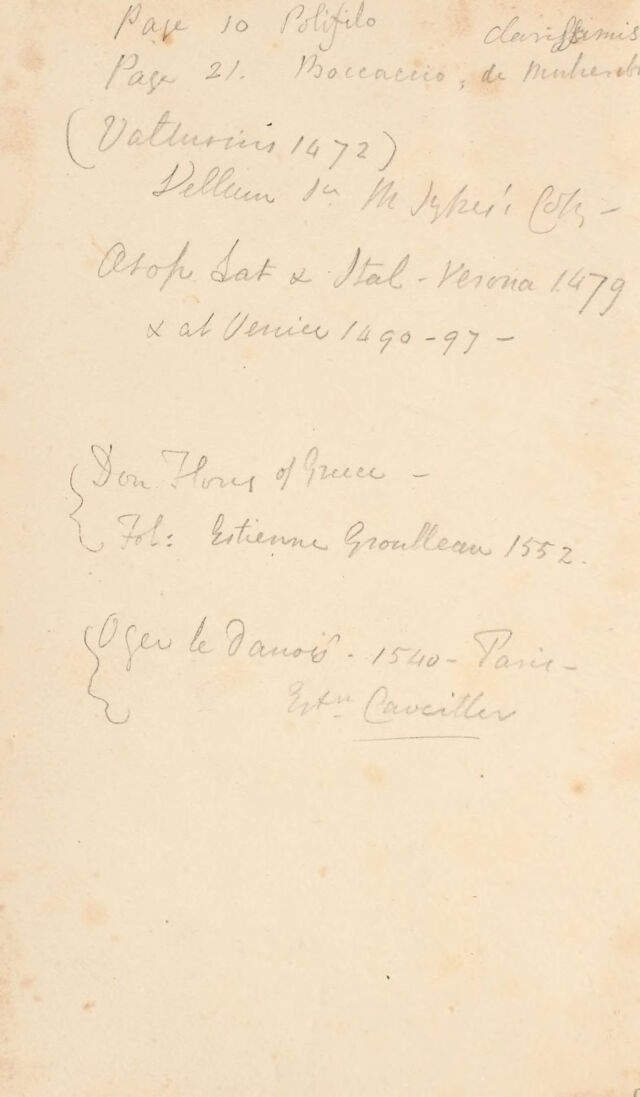 Page 10 Polifilo
clarissimis
Page 21. Boccaccio, de Mulierib
(Valturius 1472)
Vellum Sr M Sykes's Copy -
Æsop Lat & Ital - Verona 1479
& at Venice 1490-97 -
Don Flores of Greece -
Fol: Estienne Groulleau 1552.
Oger le Danois - 1540 - Paris -
Estn Caveiller